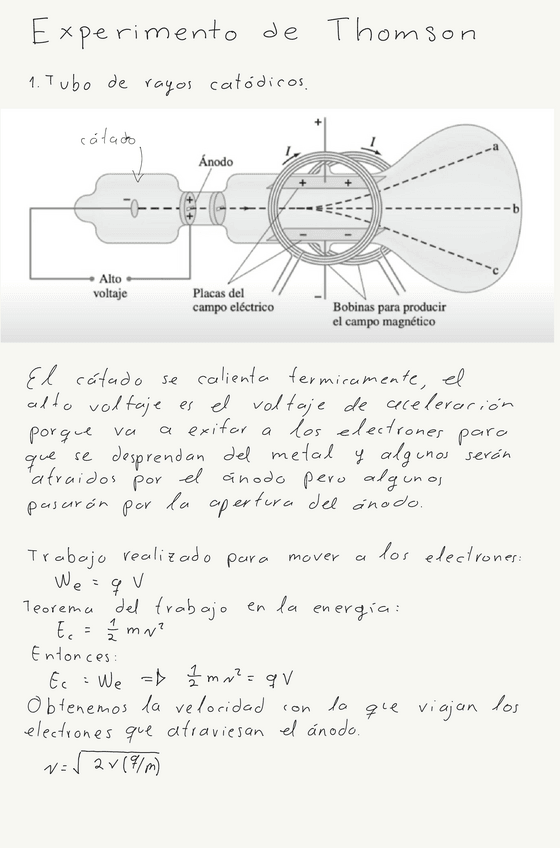 Experimento de Thomson
1. Tubo de rayos catódicos.
cátado
Ánodo
I
I
+
a
b
c
-
+
+
-
+
+
-
-
-
Alto
voltaje
Placas del
campo eléctrico
Bobinas para producir
el campo magnético
El cátado se calienta termicamente, el
alto voltaje es el voltaje de aceleración
porque va a exitar a los electrones para
que se desprendan del metal y algunos serán
atraidos por el ánodo pero algunos
pasarán por la apertura del ánodo.
Trabajo realizado para mover a los electrones:
We = q V
Teorema del trabajo en la energía:
Ec = 1/2 mv²
Entonces:
Ec = We => 1/2 mv² = q V
Obtenemos la velocidad con la que viajan los
electrones que atraviesan el ánodo.
v = √2V(q/m)